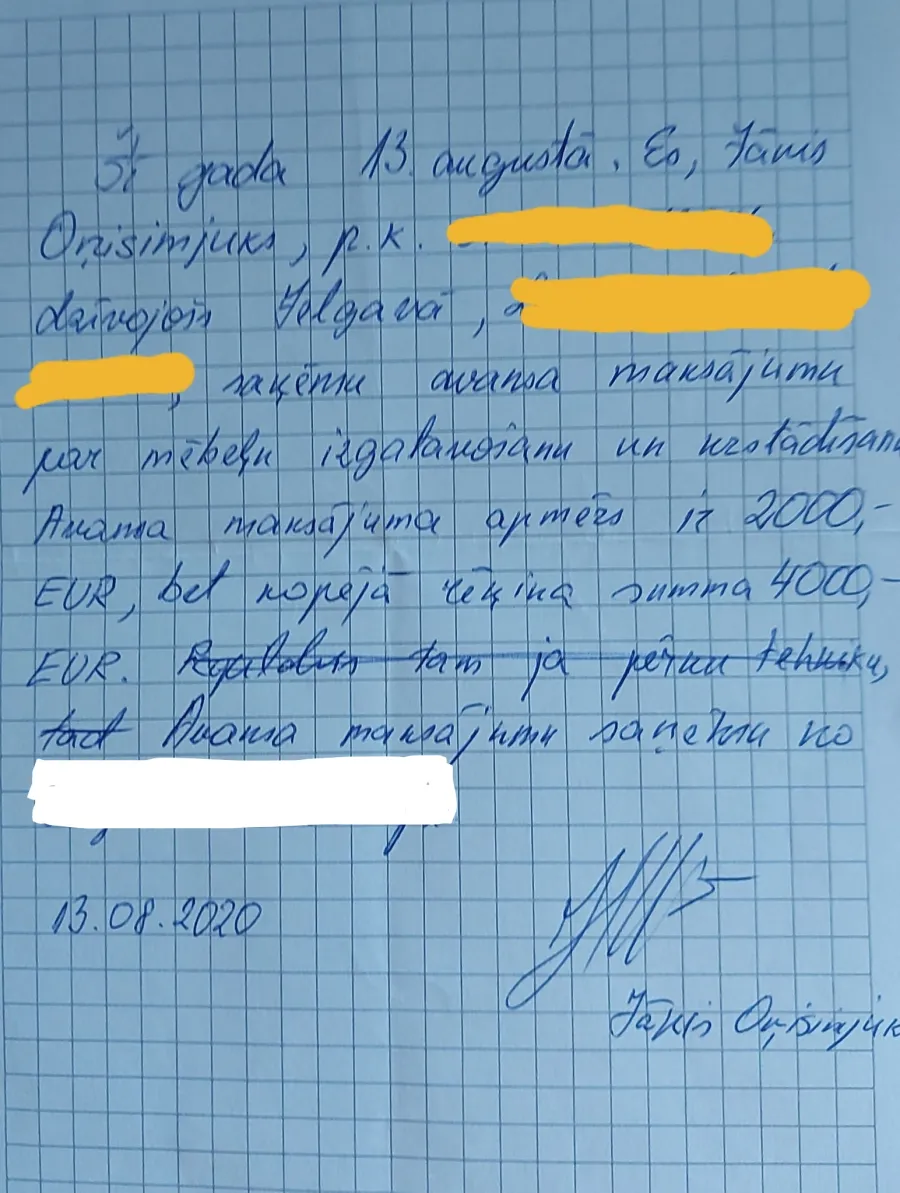 Šī gada 13. augustā. Es, Jānis
Oņisimjuks, p.k.
dzīvojošs Jelgavā,
, saņēmu avansa maksājumu
par mēbeļu izgatavošanu un uzstādīšanu
Avansa maksājuma apmērs ir 2000,-
EUR, bet kopējā rēķina summa 4000,-
EUR. tam ja pērku tehniku,
tad Avansa maksājumu saņēmu no
13.08.2020
Jānis Oņisimjuk